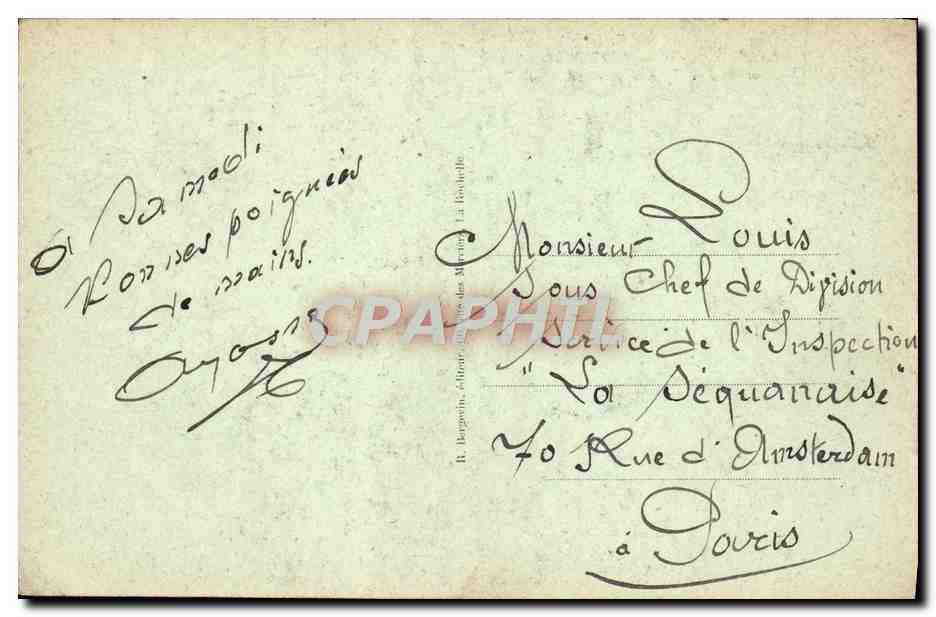 à Samedi
Bonnes poignées
de mains.
R. Bergevin, éditeur, des Merciers, La Rochelle
CPAPHIL
Monsieur Louis
Sous Chef de Division
Service de l'Inspection
"La Séquanaise"
70 Rue d'Amsterdam
à Paris